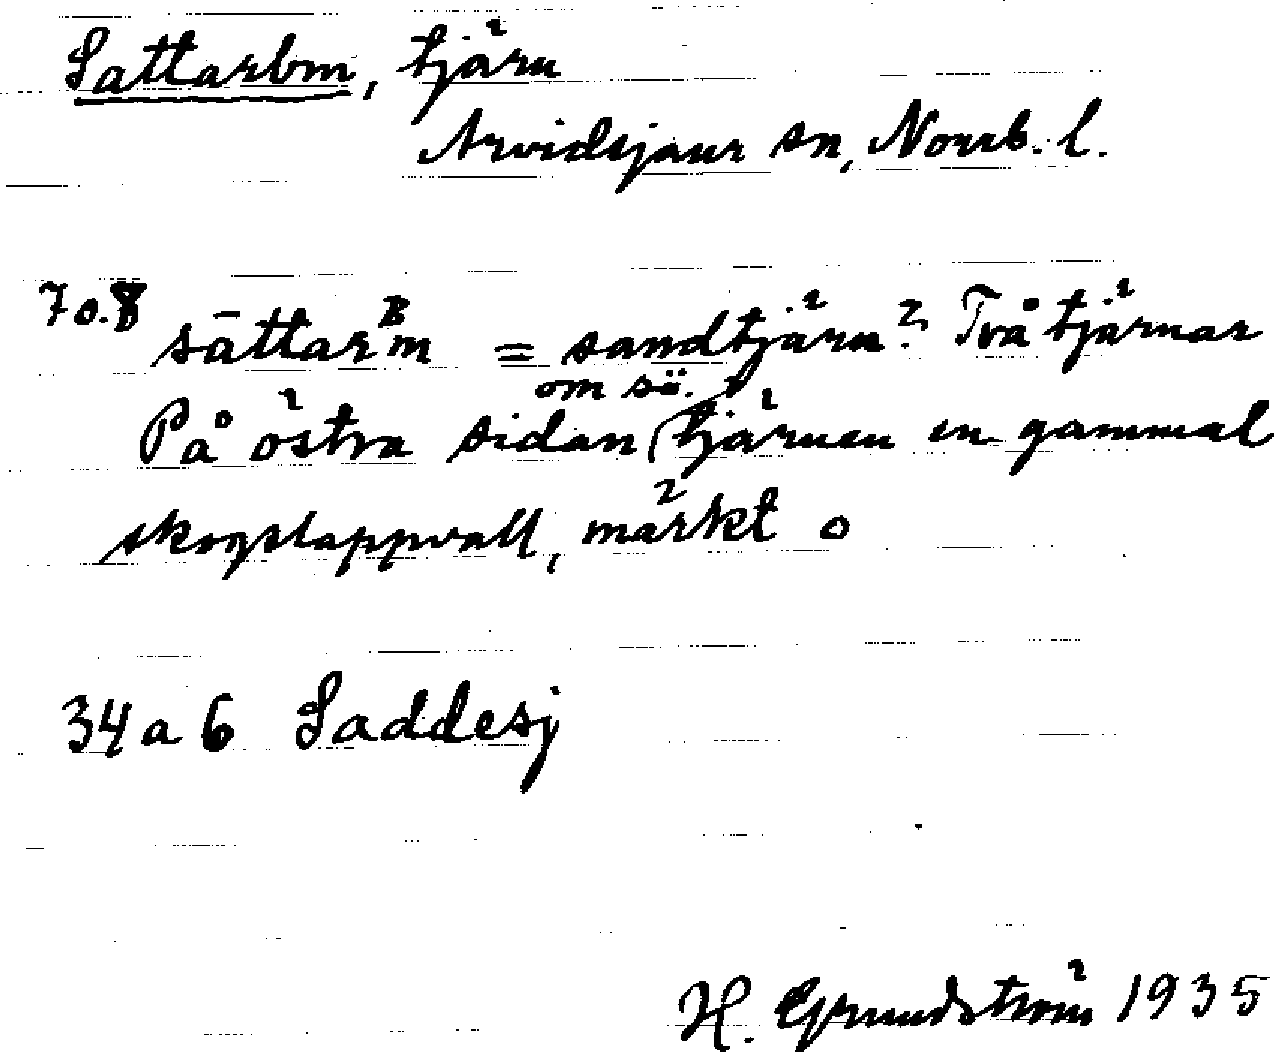 Sattarbm, tjärn
Arvidsjaur sn, Norrb. l.
70.8 sāttarᴮm = sandtjärn? Två tjärnar
om sö.
På östra sidan (tjärnen en gammal
skogslappvall, märkt o
34 a 6 Saddesj
H. Grundström 1935